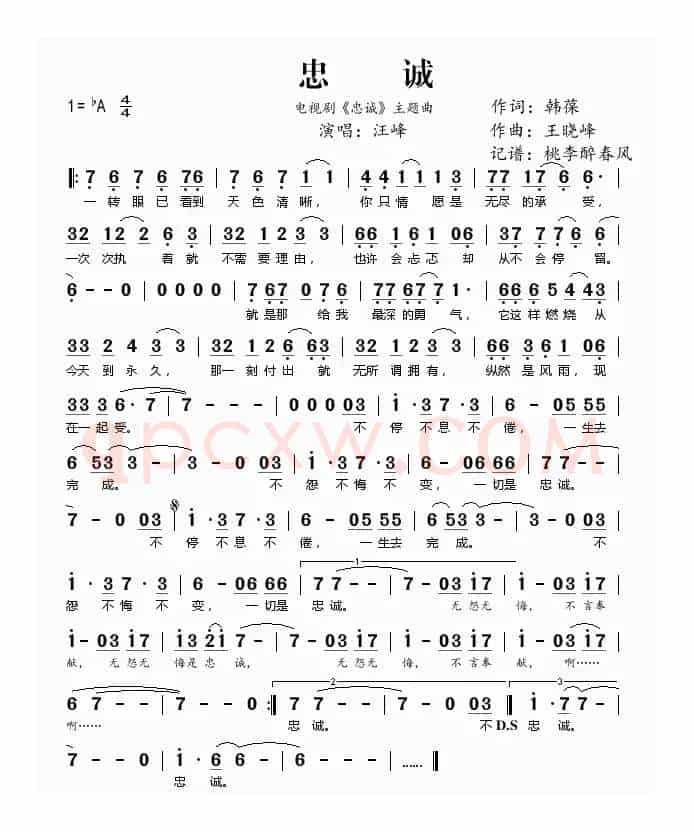 忠 诚
1=♭A 4/4 电视剧《忠诚》主题曲 作词：韩葆
演唱：汪峰 作曲：王晓峰
记谱：桃李醉春风
‖: 7 6 7 6 76 | 7 6 7 1 1 | 4 4 1 1 1 3 | 77 17 6 6 6· |
一 转 眼 已 看到 天 色 清 晰， 你 只 情 愿 是 无尽 的 承 受，
32 12 2 6 3 | 32 12 3 3 | 32 161 06 | 7 6 6 5 3 |
一次 次执 着 就 不需 要理 由， 也许 会忐忑 却 从 不 会 停 留。
6 - - 0 | 0 0 0 0 | 7 67 0 67 | 77 67 7 1· | 66 65 44 43 |
就 是那 给我 最深 的勇 气， 它这 样 燃烧 从
33 2 4 3 3 | 12 12 6 63 | 32 12 3 3 | 66 36 1 06 |
今天 到 永 久， 那一 刻付 出 就 无所 谓拥 有， 纵然 是风 雨， 现
33 3 6· 7 | 7 - - - | 0 0 0 03 | i· 37· 3 | 6 - 05 55 |
在一 起 受。 不 停 不息 不 倦， 一 生去
6 53 3 - | 3 - 0 03 | i· 37· 3 | 6 - 06 66 | 7 7 - - |
完 成。 不 怨 不悔 不 变， 一 切是 忠 诚。
7 - 0 03 | i· 37· 3 | 6 - 05 55 | 6 53 3 - | 3 - 0 03 |
不 停 不息 不 倦， 一 生去 完 成。 不
1
i· 37· 3 | 6 - 06 66 | 77 7 - - | 7 - 03 i7 | i - 03 i7 |
怨 不悔 不 变， 一 切是 忠诚。 无 怨无 悔， 不 言奉
i - 03 i7 | i3 2i 7 - | 7 - 03 i7 | i - 03 i7 | i - 03 i7 |
献， 无 怨无 悔是 忠 诚， 无 怨无 悔， 不 言奉 献， 啊……
2 3
6 7 - - | 7 - - 0 :‖ 7 7 - - | 7 - 0 03 ‖ i· 7 - |
啊…… 忠 诚。 不D.S 忠 诚。
7 - - 0 | i· 6 6 - | 6 - - - | …… ‖
忠 诚。
qpcxw.com